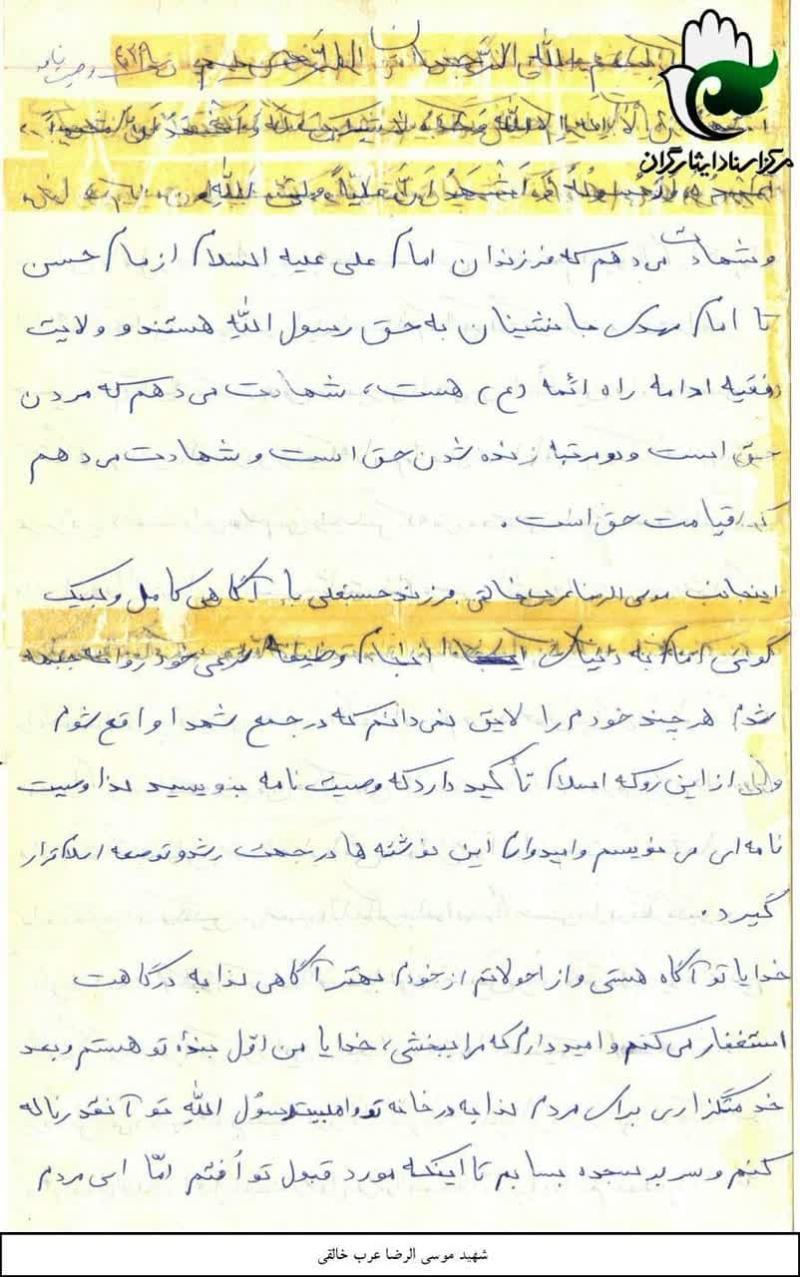 بسم الله الرحمن الرحیم وصیت نامه
مرکز اسناد ایثارگران
أشهد أن لا إله إلا الله وحده لا شریک له و أشهد أن محمداً
عبده و رسوله و أشهد أن علیاً ولی الله
و شهادت می دهم که فرزندان امام علی علیه السلام از امام حسن
تا امام مهدی جانشینان به حق رسول الله هستند و ولایت
فقیه ادامه راه ائمه (ع) هست، شهادت می دهم که مردن
حق است و دو مرتبه زنده شدن حق است و شهادت می دهم
که قیامت حق است.
اینجانب موسی الرضا عرب خالقی فرزند حسینعلی با آگاهی کامل و لبیک
گوئی امام به انجام وظیفه شرعی خود روانه جبهه
شدم هر چند خودم را لایق نمی دانم که در جمع شهدا واقع شوم
ولی از این رو که اسلام تأکید دارد که وصیت نامه بنویسید لذا وصیت
نامه ای می نویسم و امیدوارم این نوشته ها در جهت رشد و توصعه اسلام قرار
گیرد.
خدایا تو آگاه هستی و از احولاتم از خودم بهتر آگاهی لذا به درگاهت
استغفار می کنم و امید دارم که مرا ببخشی، خدایا من اوّل بندهٔ تو هستم و بعد
خدمتگزاری برای مردم لذا به در خانه تو و اهلبیت رسول الله تو آنقدر ناله
کنم و سر بر سجده بسایم تا اینکه مورد قبول تو اُفتم امّا ای مردم
شهید موسی الرضا عرب خالقی